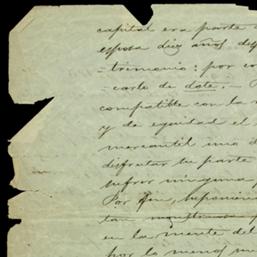 capital era parte
esposa diez años des
=trimonio: por co
=carte de dote.—
compatible con la
y de equidad el
mercantil una d
disfrutar su parte
sufrir ninguna p
Por fin, suponien
tan monstruosa
en la mente del
por lo menos me